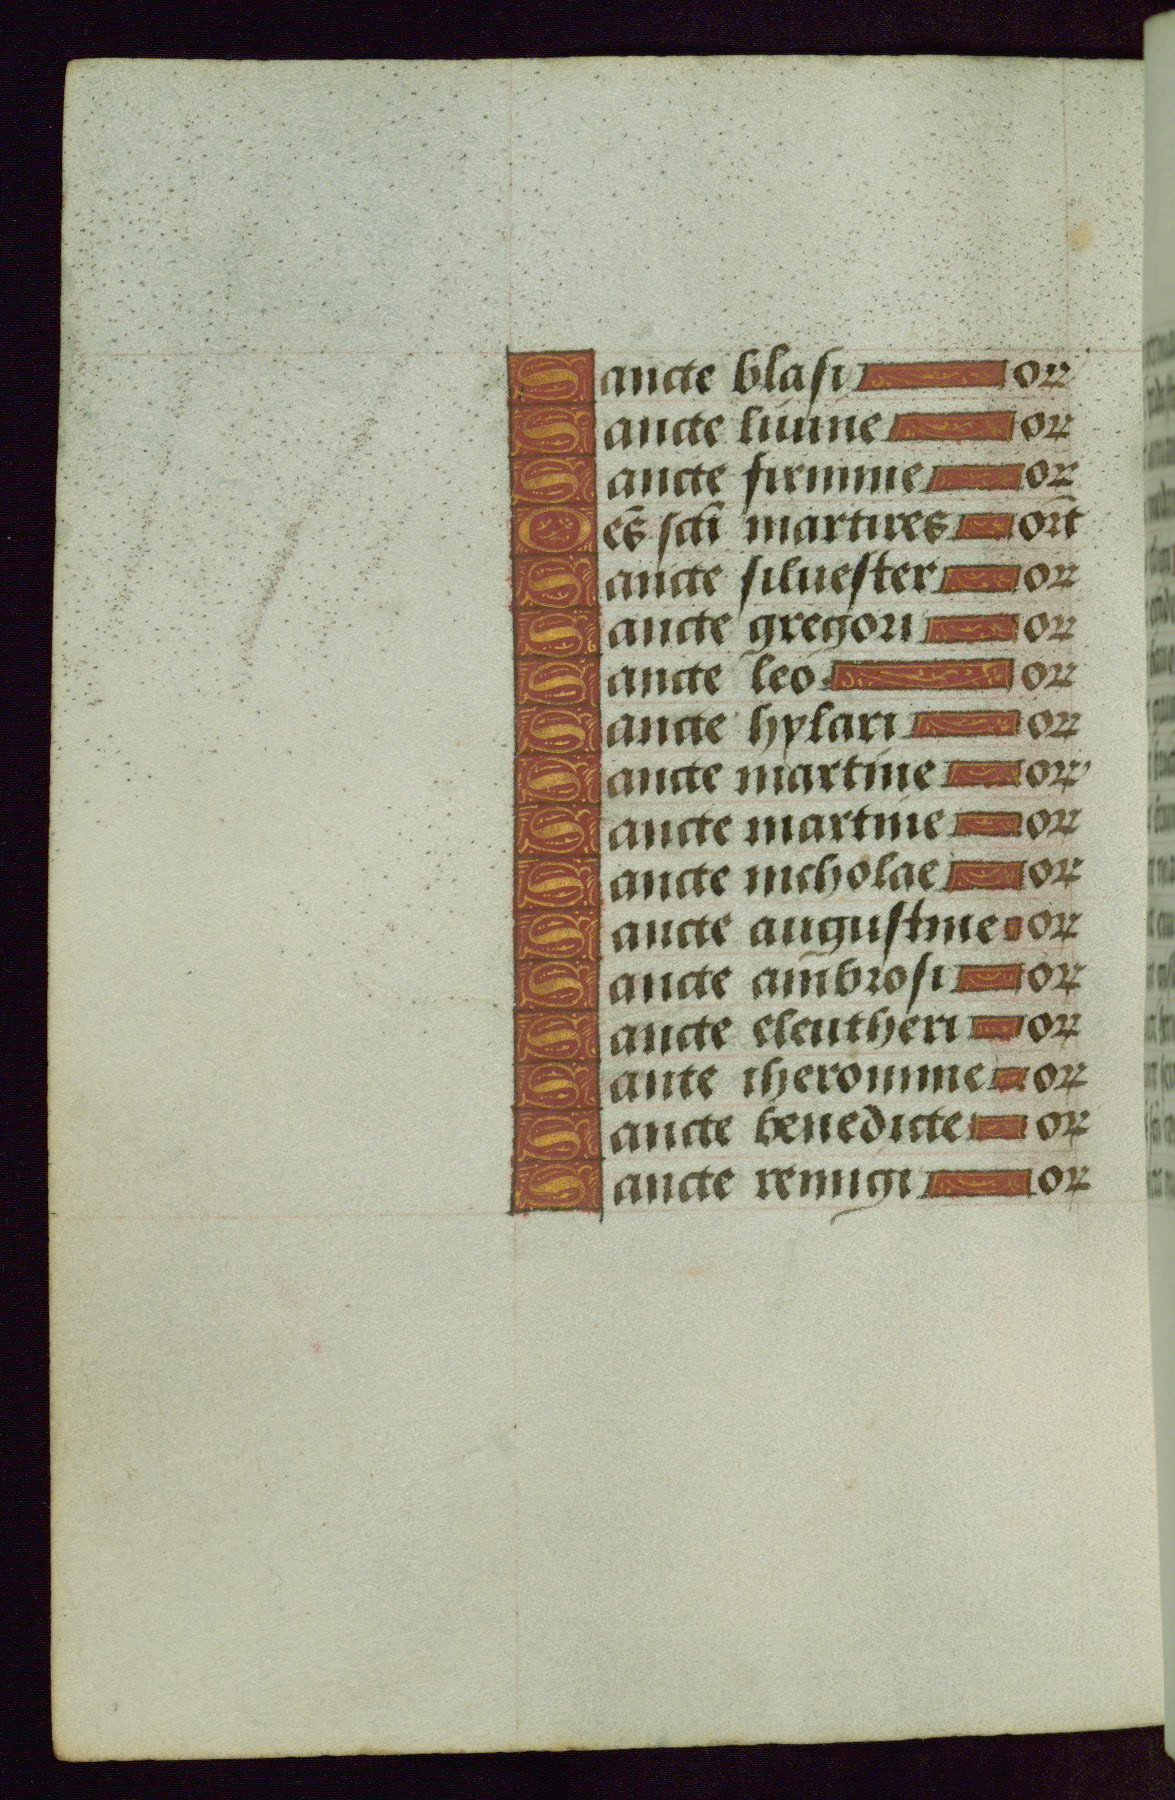 Sancte blasi or
Sancte liuine or
Sancte firmine or
Oēs scti martires ort
Sancte siluester or
Sancte gregori or
Sancte leo or
Sancte hylari or
Sancte martine or
Sancte martine or
Sancte nicholae or
Sancte augustine or
Sancte ambrosi or
Sancte eleutheri or
Sante iheronime or
Sancte benedicte or
Sancte remigi or